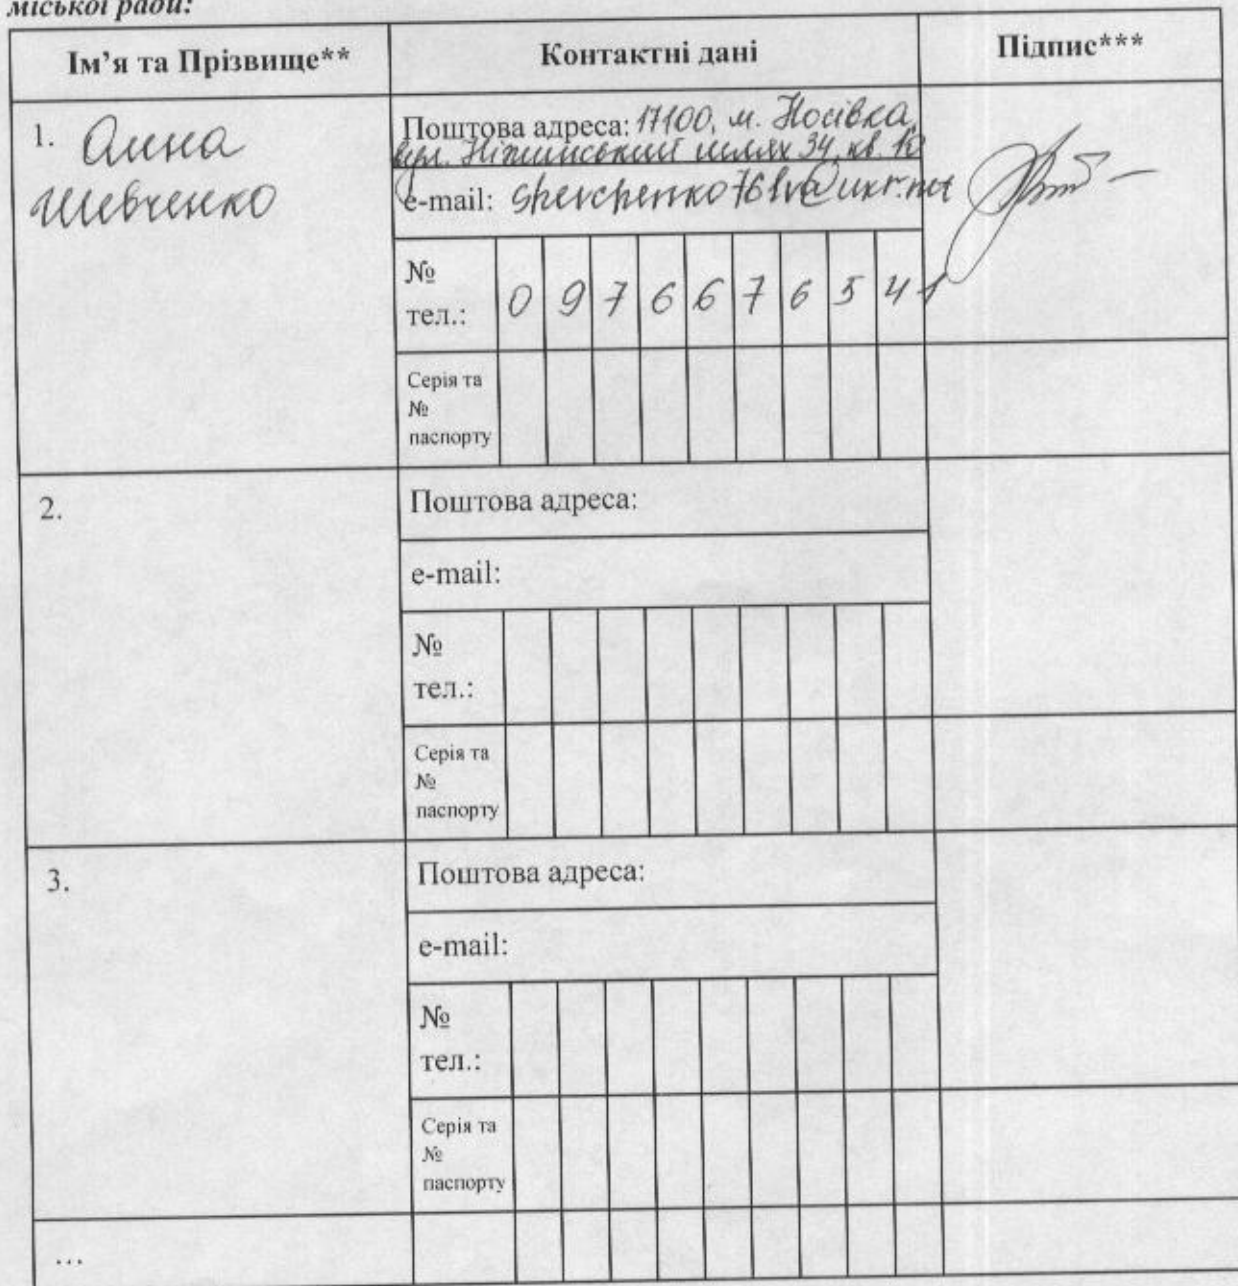 міської ради:
Ім'я та Прізвище** Контактні дані Підпис***
1. Анна
Шевченко
Поштова адреса: 17100, м. Носівка,
вул. Ніжинський шлях 34, кв.
e-mail: shevchenko761va@ukr.net
№
тел.: 0 9 7 6 6 7 6 5 4 1
Серія та
№
паспорту
2.
Поштова адреса:
e-mail:
№
тел.:
Серія та
№
паспорту
3.
Поштова адреса:
e-mail:
№
тел.:
Серія та
№
паспорту
...